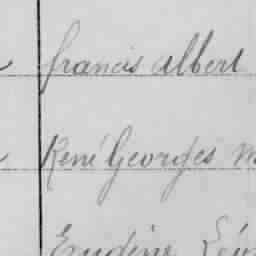 francis albert
René Georges m
Eugène Léon